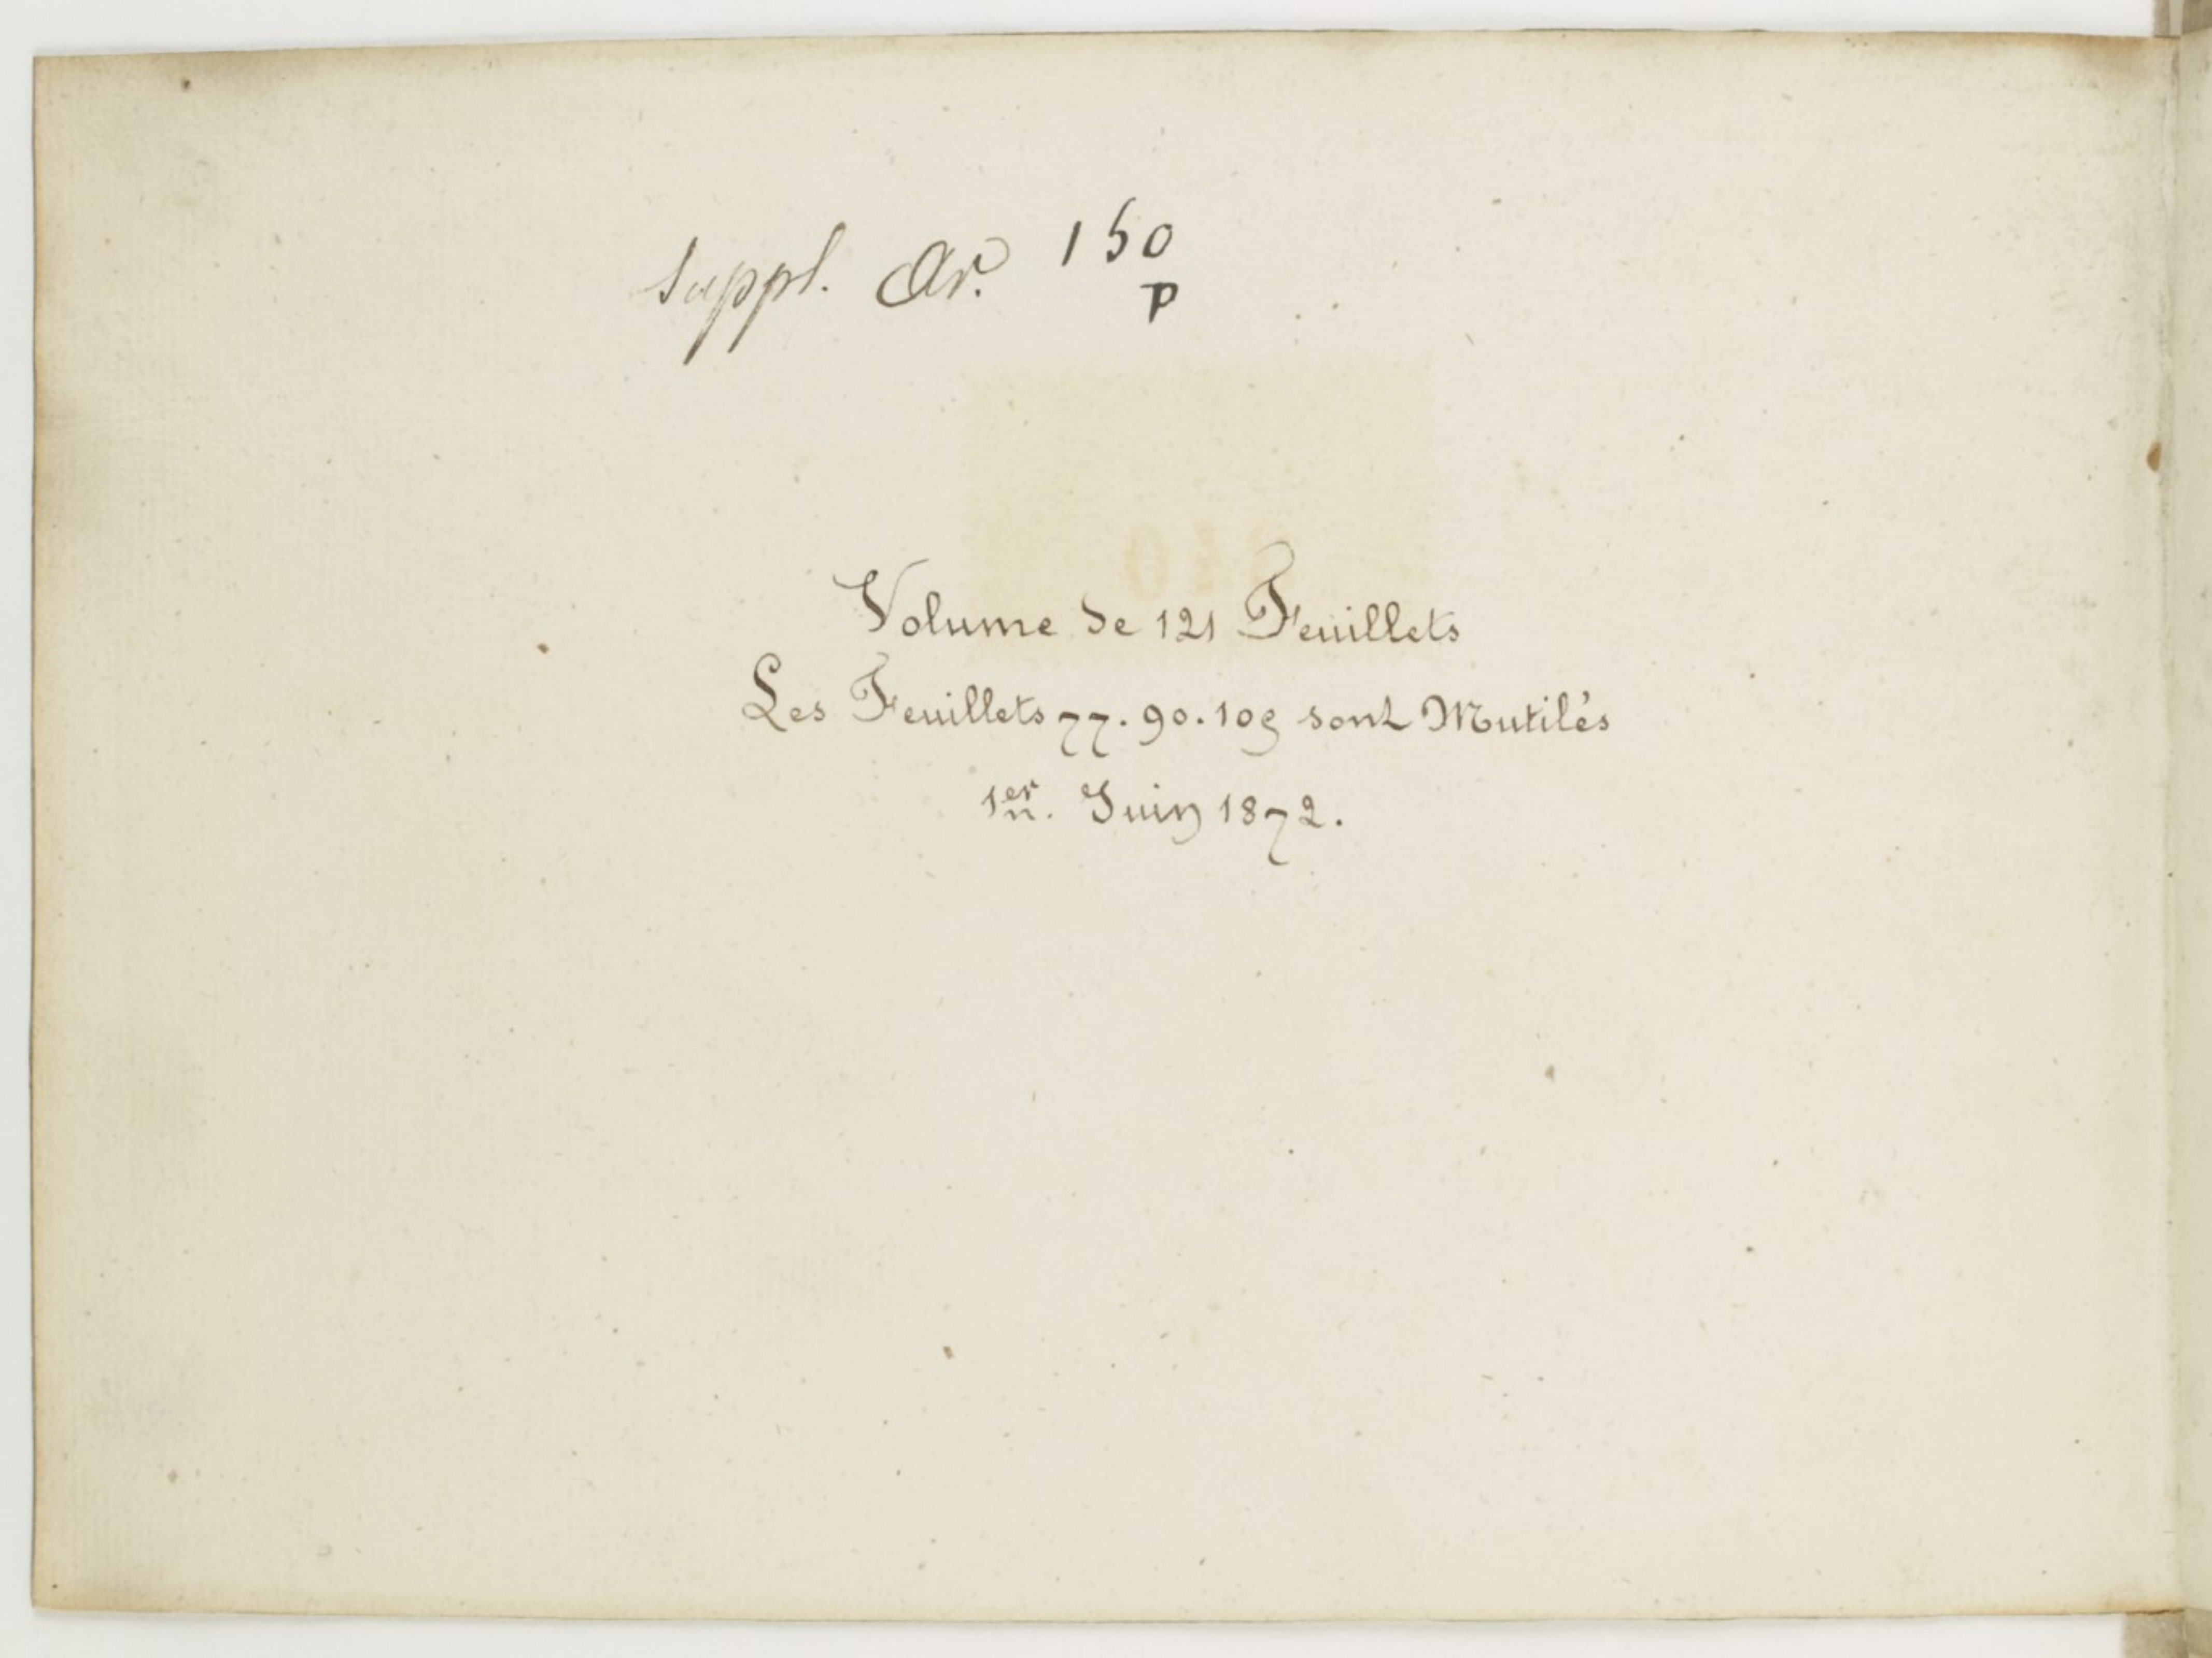 Suppl. Ar. 150
P
Volume de 121 Feuillets
Les Feuillets 77. 90. 109 sont Mutilés
1er. Juin 1872.